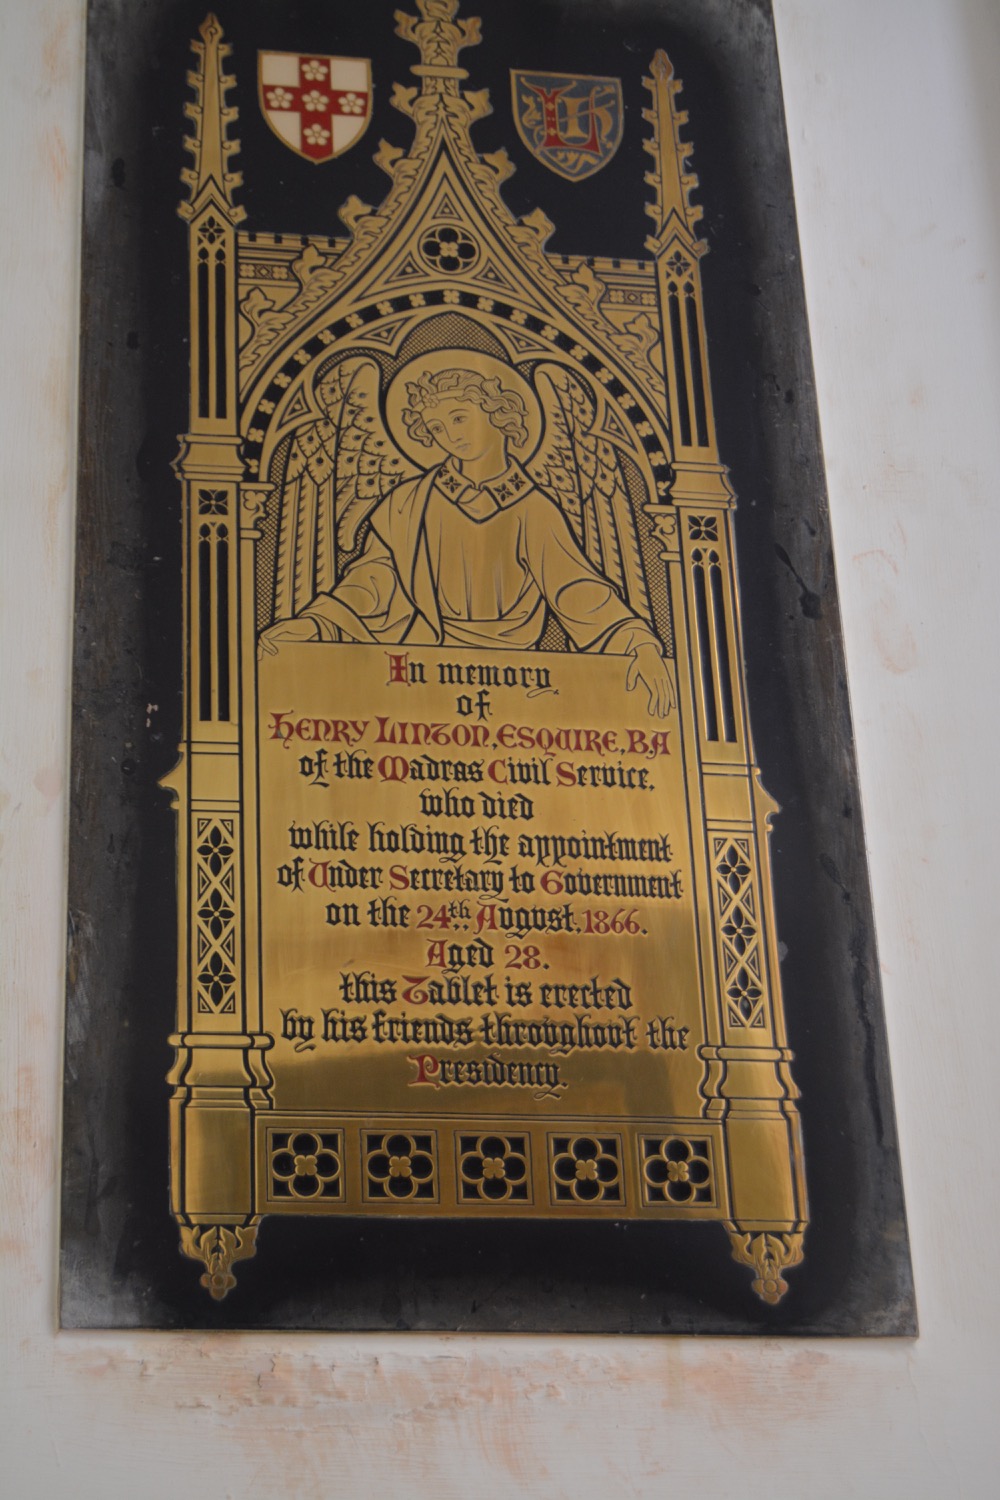 In memory
of
HENRY LINTON, ESQUIRE, B.A
of the Madras Civil Service,
who died
while holding the appointment
of Under Secretary to Government
on the 24th August, 1866.
Aged 28.
this Tablet is erected
by his friends throughout the
Presidency.